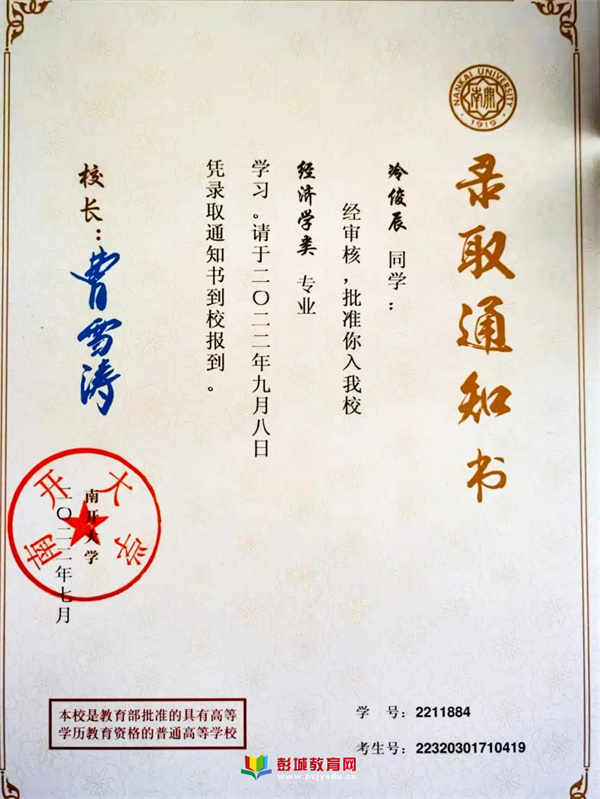 NANKAI UNIVERSITY
南開
1919
录取通知书
冷俊辰 同学:
经审核,批准你入我校
经济学类 专业
学习。请于二〇二二年九月八日
凭录取通知书到校报到。
校长:曹雪涛
南开大学
二〇二二年七月
南开大学
本校是教育部批准的具有高等
学历教育资格的普通高等学校
学 号:2211884
考生号:22320301710419
彭城教育网
www.pcjyedu.cn